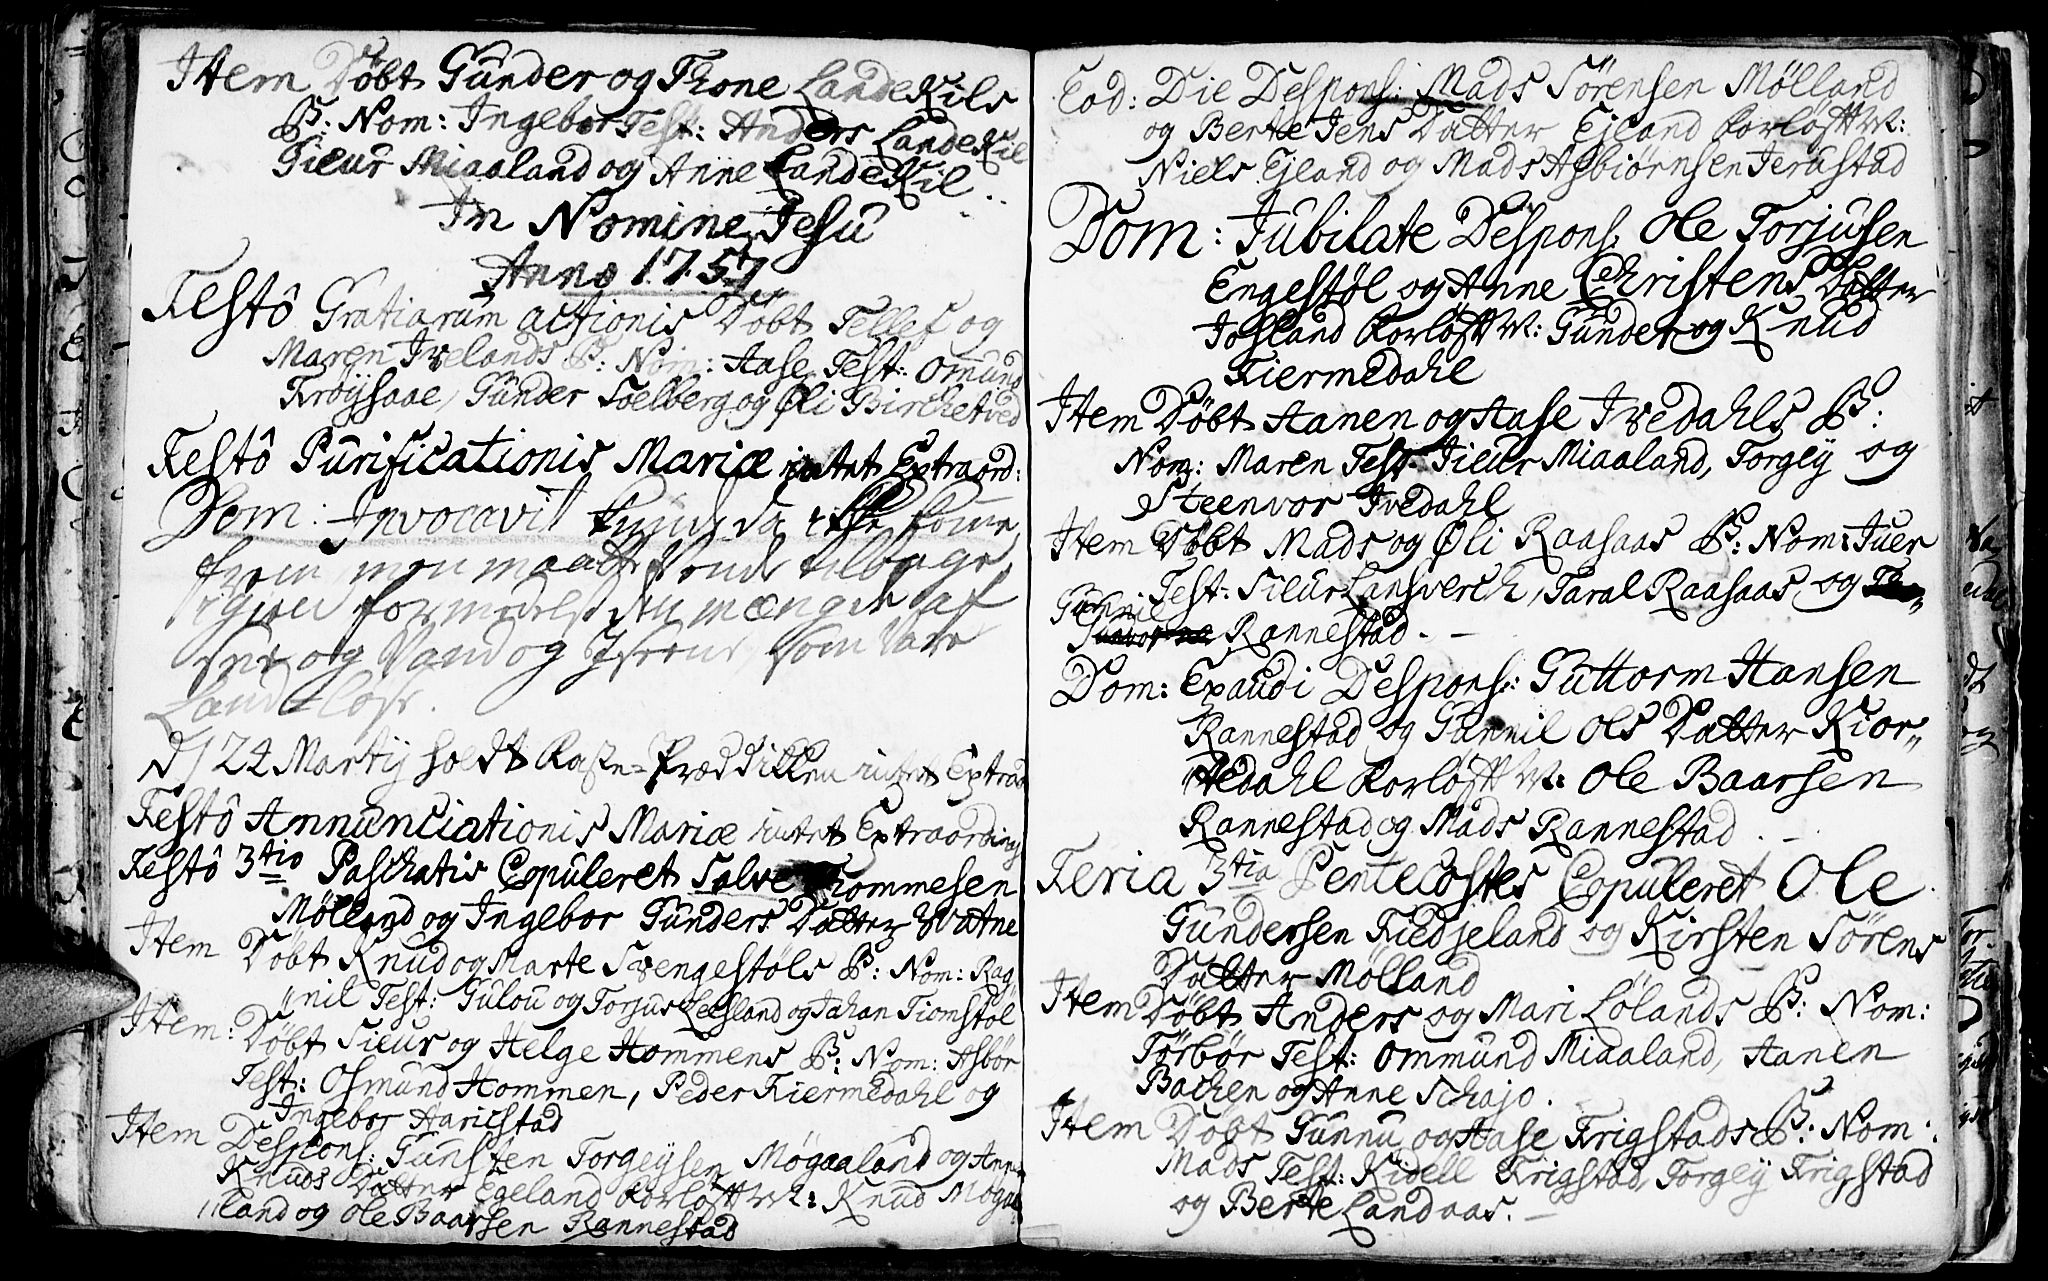 Item Døbt Gunder og Thone LandeKils
B: Nom: Ingebor Test: Anders LandeKil
Sieur Miaaland og Anne LandeKil
In Nomine Jesu
Anno 1757
Festô Gratiarum actionis Døbt Tellef og
Maren Ivelands B: Nom: Aase Test: Omund
Frøÿsaae, Gunder Soelberg og Øli Birchetved
Festô Purificationis Mariæ intet Extraord:
Dom: Invocavit kunde ieg ikke komme
frem, men maatte vende tilbage
igien formedelst den mængde af
Snee og Vand og Isene, som vare
Landløse.
d 24 Martij holdt Faste-Præddikken intet Extraord
Festô Annunciationis Mariæ intet Extraording
Festô 3tio Paschatis Copuleret Salve Thommesen
Mølland og Ingebor Gunders Datter Vatne
Item Døbt Knud og Marte Svengestøls B: Nom: Rag„
„nil Test: Gulou og Torjus Lefland og Johan Tiomstøl
Item: Døbt Sieur og Helge Hommens B: Nom: Asbør
Test: Osmund Hommen, Peder Fiermedahl og
Ingebor Haristad
Item Despons: Gunsten Torgeÿsen Møgaaland og Anne
Knuds Datter Egeland Forløfft W: Knud Møgaa„
„land og Ole Baarsen Rannestad
Eod: Die Despons: Mads Sørensen Mølland
og Berte Jens Datter Ejland Forløfft W:
Niels Ejland og Mads Asbiørnsen Jerustad
Dom: Jubilate Despons. Ole Torjusen
Engestøl og Anne Christens Datter
Josland Forløfft W: Gunder og Knud
Fiermedahl
Item Døbt Aanen og Aase Ivedahls B:
Nom: Maren Test. Sieur Miaaland, Torgeÿ og
Steenvor Ivedahl
Item Døbt Mads og Øli Raasaas B: Nom: Iuer
Test: Sieur Lansverch, Taral Raasaas og
Gunnil
Rannestad. -
Dom: Exaudi Despons: Guttorm Hansen
Rannestad og Gunnil Ols Datter Kior„
„tedahl Forløfft W: Ole Baarsen
Rannestad og Mads Rannestad. -
Feria 3tia Pentecostes Copuleret Ole
Gundersen Fiedjeland og Kirsten Sørens
Datter Mølland
Item Døbt Anders og Mari Lølands B: Nom:
Torbør Test: Ommund Miaaland, Aanen
Bachen og Anne Schajo.
Item Døbt Gunnu og Aase Frigstads B: Nom:
Mads Test: Kidell Frigstad, Torgeÿ Frigstad
og Berte Landaas. -